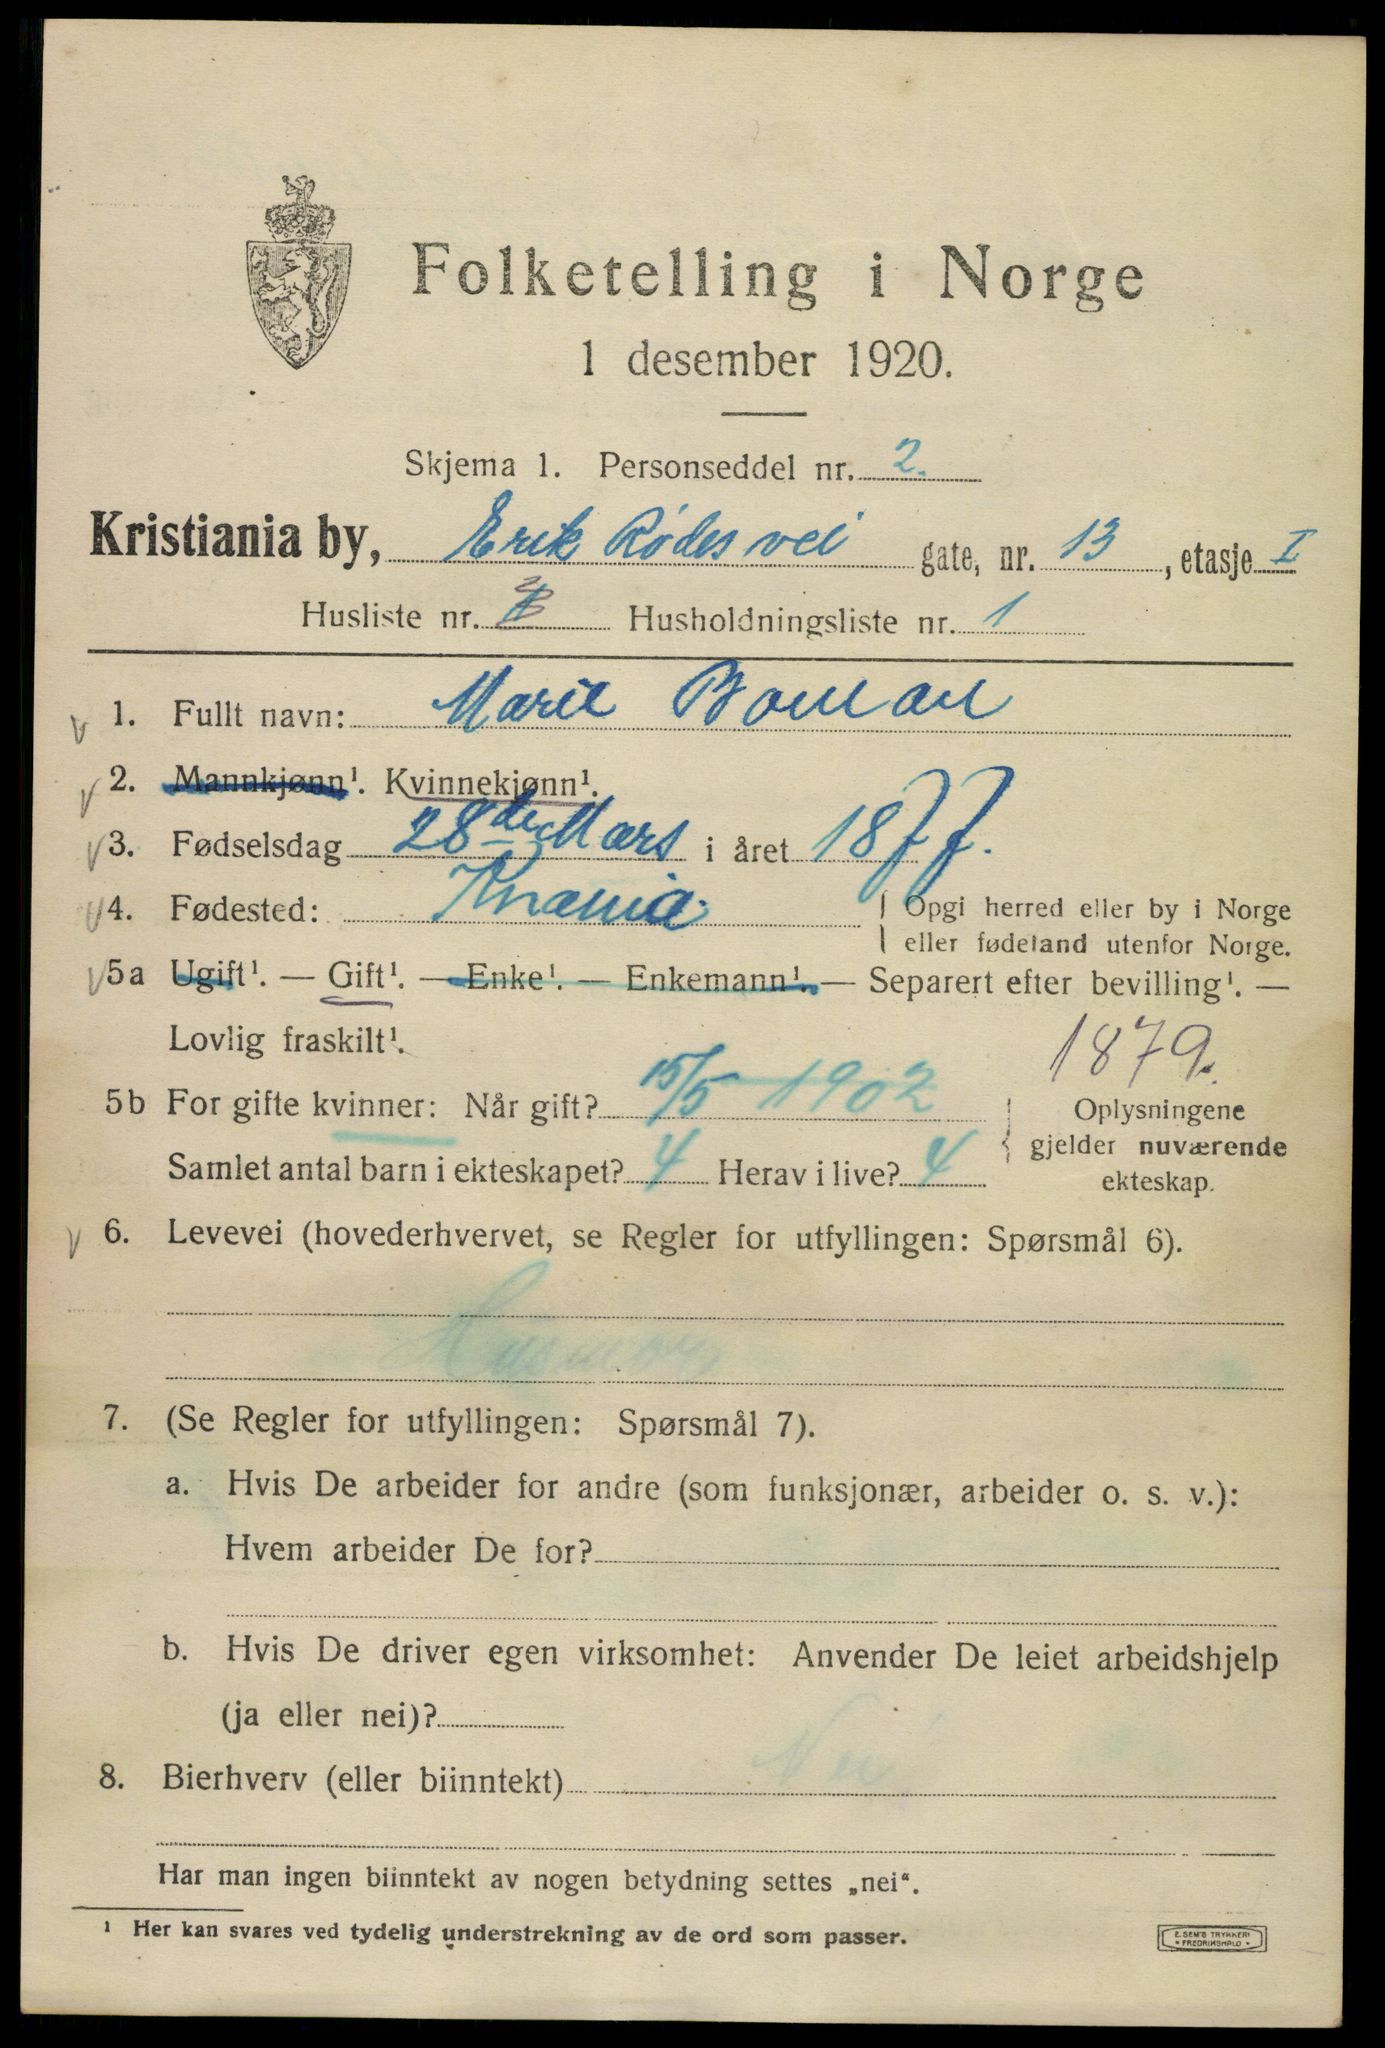 Folketelling i Norge
1 desember 1920.
Skjema 1. Personseddel nr. 2.
Kristiania by, Erik Rødes vei gate, nr. 13, etasje I
Husliste nr. Husholdningsliste nr. 1
1. Fullt navn: Marie Boman
2. Mannkjønn¹. Kvinnekjønn¹.
3. Fødselsdag 28de Mars i året 1877.
4. Fødested: Krania { Opgi herred eller by i Norge
eller fødeland utenfor Norge.
5a Ugift¹. — Gift¹. — Enke¹. — Enkemann¹. — Separert efter bevilling¹. —
Lovlig fraskilt¹. 1879.
5b For gifte kvinner: Når gift? 15/5 1902 { Oplysningene
gjelder nuværende
Samlet antal barn i ekteskapet? 4 Herav i live? 4 ekteskap.
6. Levevei (hovederhvervet, se Regler for utfyllingen: Spørsmål 6).
Husmor
7. (Se Regler for utfyllingen: Spørsmål 7).
a. Hvis De arbeider for andre (som funksjonær, arbeider o. s. v.):
Hvem arbeider De for?
b. Hvis De driver egen virksomhet: Anvender De leiet arbeidshjelp
(ja eller nei)?
8. Bierhverv (eller biinntekt) Nei
Har man ingen biinntekt av nogen betydning settes „nei“.
¹ Her kan svares ved tydelig understrekning av de ord som passer.
E. SEM'S TRYKKERI
• FREDRIKSHALD •